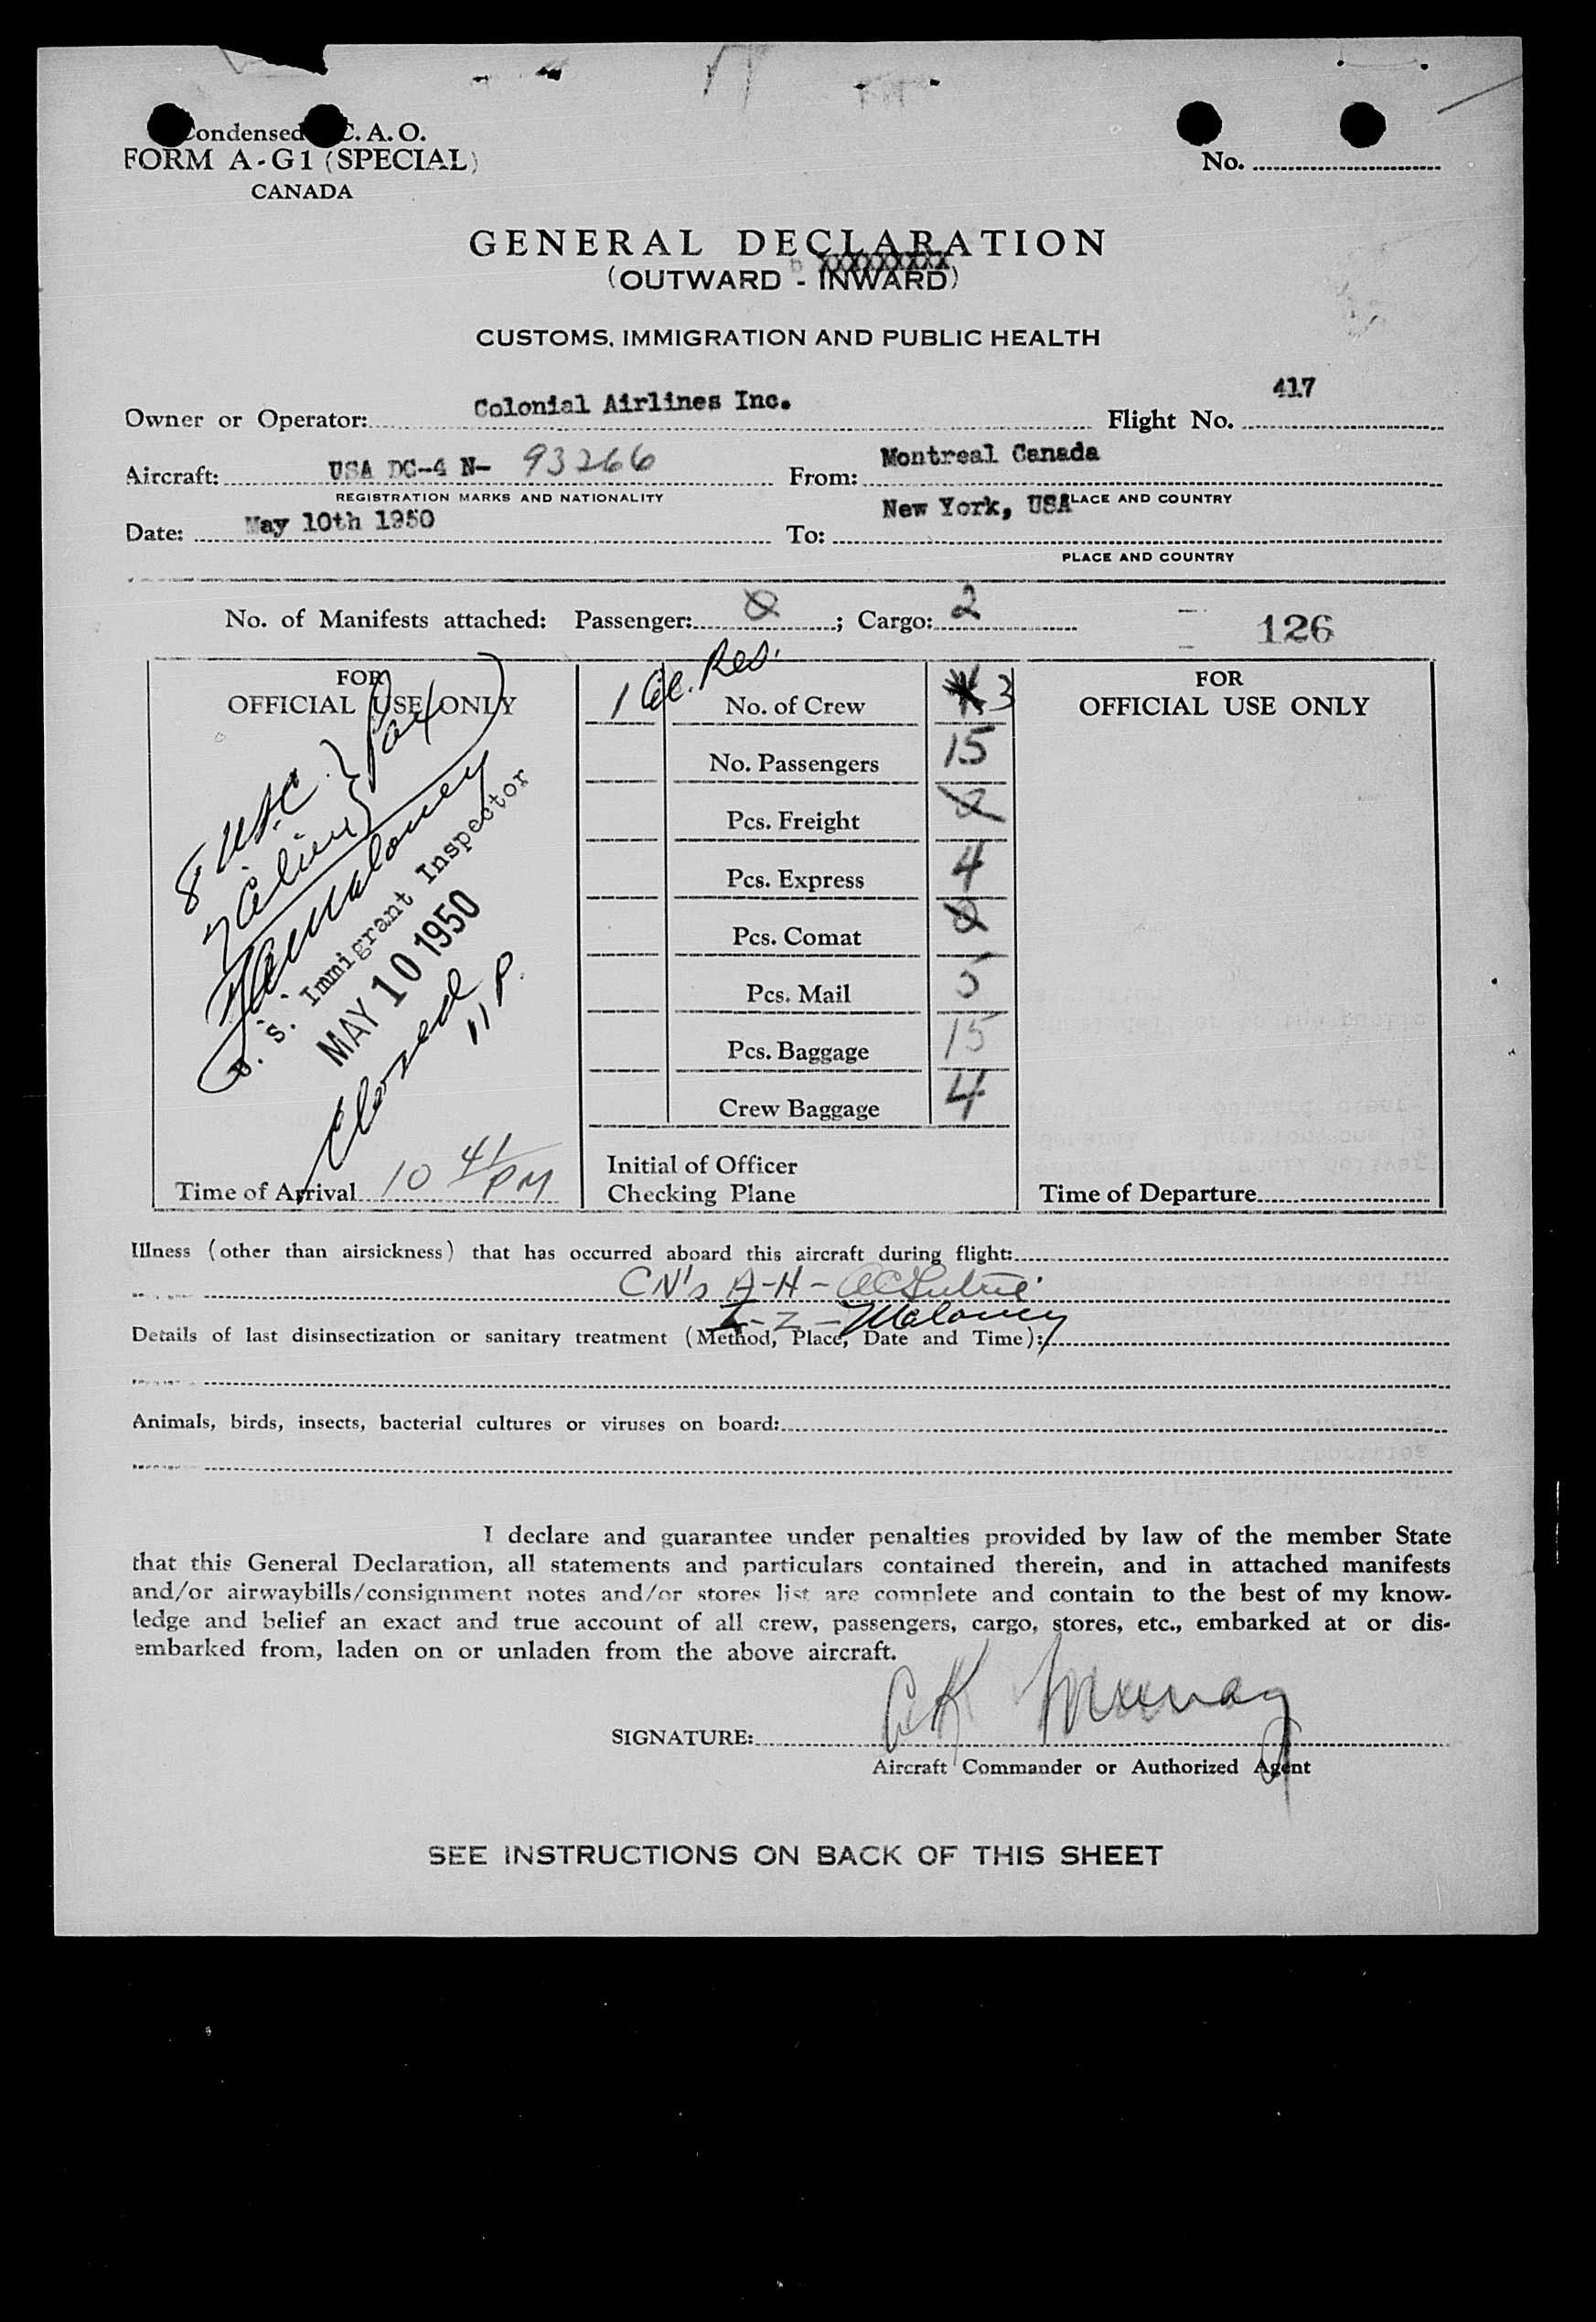 Condensed C. A. O.
FORM A-G1 (SPECIAL)
CANADA
No.
GENERAL DECLARATION
(OUTWARD - INWARD)
XXXXXXXXX
CUSTOMS, IMMIGRATION AND PUBLIC HEALTH
Owner or Operator: Colonial Airlines Inc. Flight No. 417
Aircraft: USA DC-4 N- 93266 From: Montreal Canada
REGISTRATION MARKS AND NATIONALITY PLACE AND COUNTRY
Date: May 10th 1950 To: New York, USA
PLACE AND COUNTRY
No. of Manifests attached: Passenger: 0 ; Cargo: 2
126
FOR
OFFICIAL USE ONLY
8 USC } Pax
7 Aliens
Maloney
U. S. Immigrant Inspector
MAY 10 1950
Closed 11 P.
Time of Arrival 10 41 PM
1 Al. Res.
No. of Crew 4 3
No. Passengers 15
Pcs. Freight 0
Pcs. Express 4
Pcs. Comat 0
Pcs. Mail 5
Pcs. Baggage 15
Crew Baggage 4
Initial of Officer
Checking Plane
FOR
OFFICIAL USE ONLY
Time of Departure
Illness (other than airsickness) that has occurred aboard this aircraft during flight:
CN's A-H -
I-Z - Maloney
Details of last disinsectization or sanitary treatment (Method, Place, Date and Time):
Animals, birds, insects, bacterial cultures or viruses on board:
I declare and guarantee under penalties provided by law of the member State
that this General Declaration, all statements and particulars contained therein, and in attached manifests
and/or airwaybills/consignment notes and/or stores list are complete and contain to the best of my know-
ledge and belief an exact and true account of all crew, passengers, cargo, stores, etc., embarked at or dis-
embarked from, laden on or unladen from the above aircraft.
SIGNATURE: CK Murray
Aircraft Commander or Authorized Agent
SEE INSTRUCTIONS ON BACK OF THIS SHEET